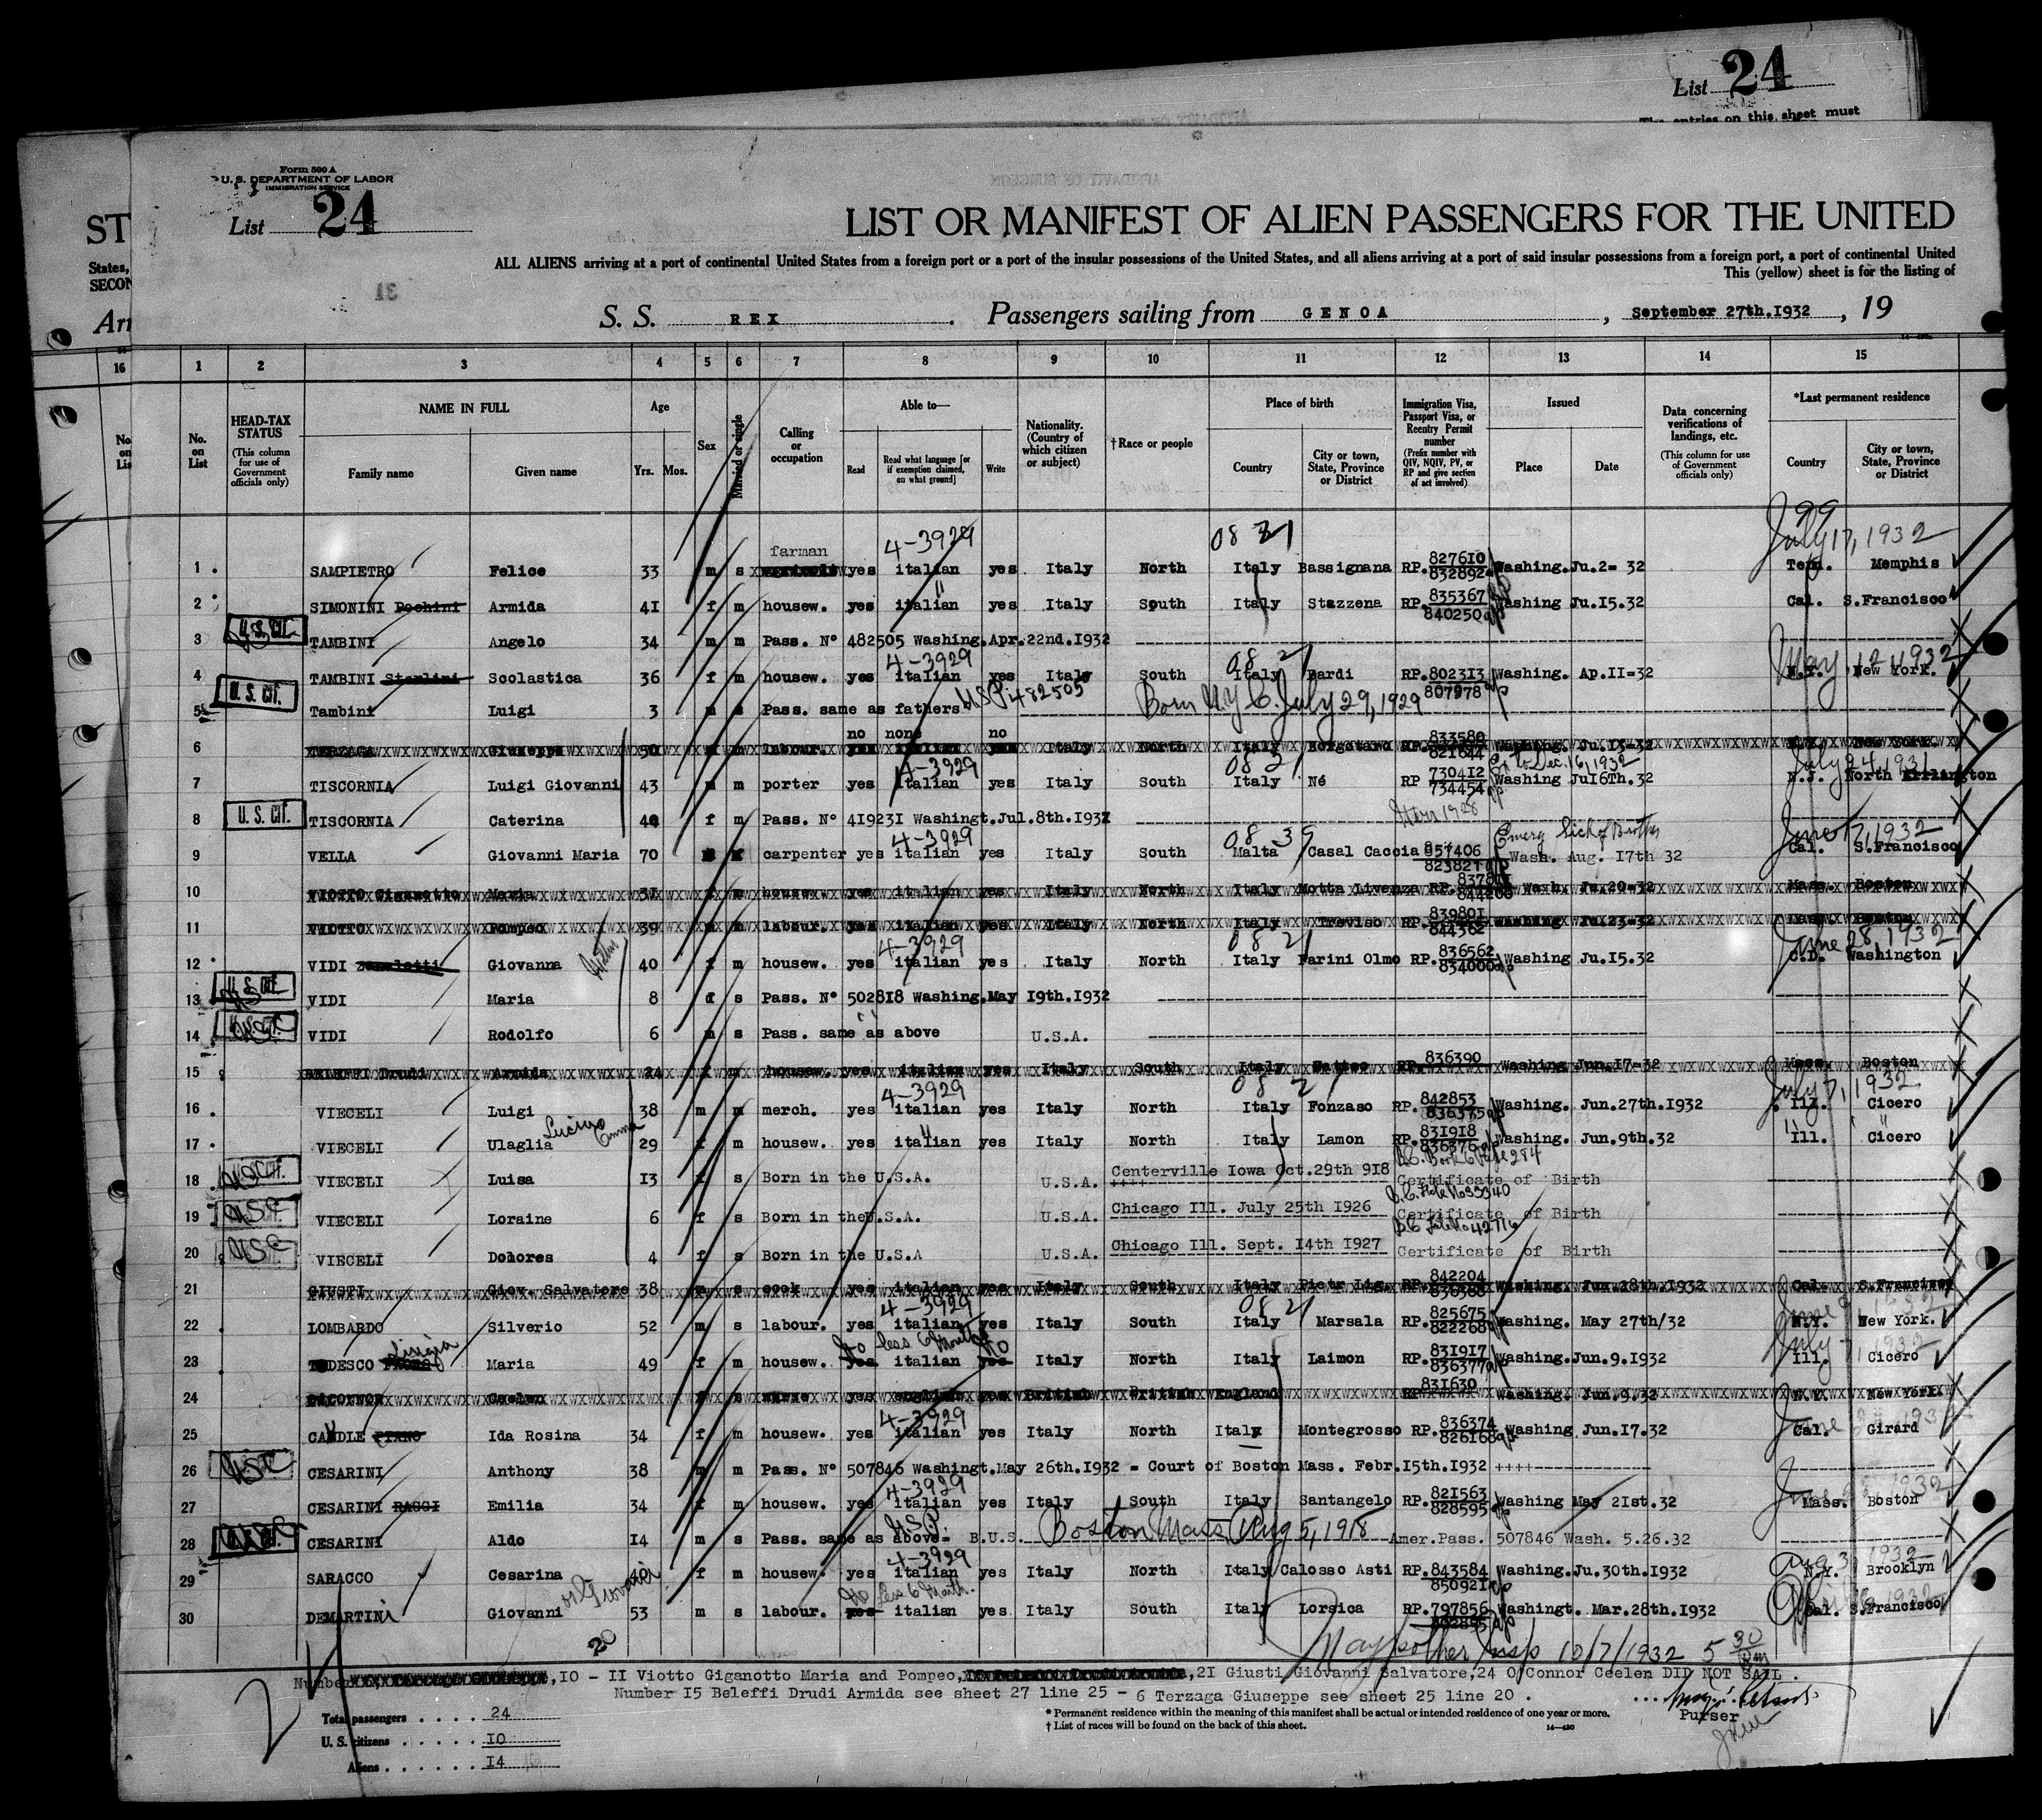 List 24
The entries on this sheet must
Form 500 A
U. S. DEPARTMENT OF LABOR
IMMIGRATION SERVICE
List 24
ST
LIST OR MANIFEST OF ALIEN PASSENGERS FOR THE UNITED
States,
SECON
ALL ALIENS arriving at a port of continental United States from a foreign port or a port of the insular possessions of the United States, and all aliens arriving at a port of said insular possessions from a foreign port, a port of continental United
This (yellow) sheet is for the listing of
Arr
S. S. REX . Passengers sailing from GENOA , September 27th.1932 , 19
16 1 2 3 4 5 6 7 8 9 10 11 12 13 14 15
No. on Lis
No. on List
HEAD-TAX STATUS (This column for use of Government officials only)
NAME IN FULL Family name Given name
Age Yrs. Mos.
Sex
Married or single
Calling or occupation
Able to— Read Read what language [or if exemption claimed, on what ground] Write
Nationality. (Country of which citizen or subject)
†Race or people
Place of birth Country City or town, State, Province or District
Immigration Visa, Passport Visa, or Reentry Permit number (Prefix number with QIV, NQIV, PV, or RP and give section of act involved)
Issued Place Date
Data concerning verifications of landings, etc. (This column for use of Government officials only)
*Last permanent residence Country City or town, State, Province or District
99
farman 4-3929 08 21 827610 July 17, 1932
1 SAMPIETRO Felice 33 m s yes italian yes Italy North Italy Bassignana RP. 832892 Washing.Ju.2= 32 Tenn. Memphis
2 SIMONINI Pochini Armida 41 f m housew. yes italian yes Italy South Italy Stazzena RP. 835367 840250 Washing Ju.15.32 Cal. S.Francisco
U.S. CIT.
3 TAMBINI Angelo 34 m m Pass. N° 482505 Washing.Apr.22nd.1932
4-3929 08 21 May 12, 1932
4 TAMBINI Sterlini Scolastica 36 f m housew. yes italian yes Italy South Italy Bardi RP. 802313 807978 Washing. Ap.11=32 N.Y. New York.
U. S. CIT.
5 Tambini Luigi 3 m s Pass. same as fathers U.S.P. 482505 Born N.Y.C. July 29, 1929
no none no
6 TERZAGA Giuseppe 50 m labour. yes italian yes Italy North Italy Borgotaro RP. 833580 821644 Washing. Ju.13=32 N.Y. New York.
4-3929 08 21 to Dec. 16, 1932 July 24, 1931
7 TISCORNIA Luigi Giovanni 43 m m porter yes italian yes Italy South Italy Né RP 730412 734454 Washing Ju16Th.32 N.J. North Errlington
U. S. CIT.
8 TISCORNIA Caterina 40 f m Pass. N° 419231 Washingt.Jul.8th.1932
4-3929 08 39 Emerg Sick of Brother June 17, 1932
9 VELLA Giovanni Maria 70 carpenter yes italian yes Italy South Malta Casal Caccia 857406 823821 Wash. Aug. 17th 32 Cal. S.Francisco
10 VIOTTO Giganotto Maria 31 f m housew. yes italian yes Italy North Italy Motta Livenza RP. Wash. Ju.20=32 Mass. Boston
11 VIOTTO Pompeo 39 m m labour. yes italian yes Italy North Italy Treviso RP. 839801 844362 Washing Ju.23=32 Mass. Boston
4-3929 08 21 June 28, 1932
12 VIDI Giovanna 40 f m housew. yes italian yes Italy North Italy Farini Olmo RP. 836562 834000 Washing Ju.15.32 C.D. Washington
U.S. CIT.
13 VIDI Maria 8 f s Pass. N° 502818 Washing.May 19th.1932
14 VIDI Rodolfo 6 m s Pass. same as above U.S.A.
15 BELEFFI Drudi Armida 24 f m housew. yes italian yes Italy South Italy RP. 836390 Washing Jun.17=32 Mass. Boston
4-3929 08 21 July 7, 1932
16 VIECELI Luigi 38 m m merch. yes italian yes Italy North Italy Fonzaso RP. 842853 836375 Washing. Jun.27th.1932 Ill. Cicero
17 VIECELI Ulaglia 29 f m housew. yes italian yes Italy North Italy Lamon RP. 831918 836376 Washing. Jun.9th.32 Ill. Cicero
B.C. Book 6 Page 284
18 VIECELI Luisa 13 f s Born in the U.S.A. U.S.A. Centerville Iowa Oct.29th 918 Certificate of Birth
19 VIECELI Loraine 6 f s Born in the U.S.A. U.S.A. Chicago Ill. July 25th 1926 Certificate of Birth
20 VIECELI Dolores 4 f s Born in the U.S.A U.S.A. Chicago Ill. Sept. 14th 1927 Certificate of Birth
21 GIUSTI Giov. Salvatore 38 m s cook yes italian yes Italy South Italy Pietr Lig. RP. 842204 836388 Washing. Jun.28th.1932 Cal. S.Francisco
4-3929 08 21 June
22 LOMBARDO Silverio 52 m s labour. yes italian yes Italy South Italy Marsala RP. 825675 822268 Washing. May 27th/32 N.Y. New York.
No less 6 Months No July 7, 1932
23 TODESCO Maria 49 f m housew. yes italian yes Italy North Italy Laimon RP. 831917 836377 Washing.Jun.9.1932 Ill. Cicero
24 O'CONNOR Ceelen f s nurse yes english yes British British England RP. 831630 Washing. Jun.9.32 N.Y. New York.
4-3929 June
25 CANDLE Ida Rosina 34 f m housew. yes italian yes Italy North Italy Montegrosso RP. 836374 826168 Washing Jun.17.32 Cal. Girard
26 CESARINI Anthony 38 m m Pass. N° 507846 Washingt.May 26th.1932 = Court of Boston Mass. Febr.15th.1932 ++++
4-3929
27 CESARINI RAGGI Emilia 34 f m housew. yes italian yes Italy South Italy Santangelo RP. 821563 828595 Washing May 21st.32 Mass. Boston
U.S.P.
28 CESARINI Aldo 14 m s Pass. same as above= B.U.S. Boston Mass. Aug 5, 1918 Amer.Pass. 507846 Wash. 5.26.32
4-3929 Aug 3, 1932
29 SARACCO Cesarina 40 f m housew. yes italian yes Italy North Italy Calosso Asti RP. 843584 850921 Washing.Ju.30th.1932 N.Y. Brooklyn
No less 6 Month.
30 DEMARTINI Giovanni 53 m s labour. yes italian yes Italy South Italy Lorsica RP. 797856 802855 Washingt. Mar.28th.1932 Cal. S.Francisco
20 Insp 10/7/1932 5 30
Number ,10 - 11 Viotto Giganotto Maria and Pompeo, ,21 Giusti Giovanni Salvatore,24 O'Connor Ceelen DID NOT SAIL .
Number 15 Beleffi Drudi Armida see sheet 27 line 25 - 6 Terzaga Giuseppe see sheet 25 line 20 .
Total passengers . . . . 24
* Permanent residence within the meaning of this manifest shall be actual or intended residence of one year or more.
Purser
U. S. citizens . . . . . 10
† List of races will be found on the back of this sheet. 14—430
Aliens . . . . . . 14